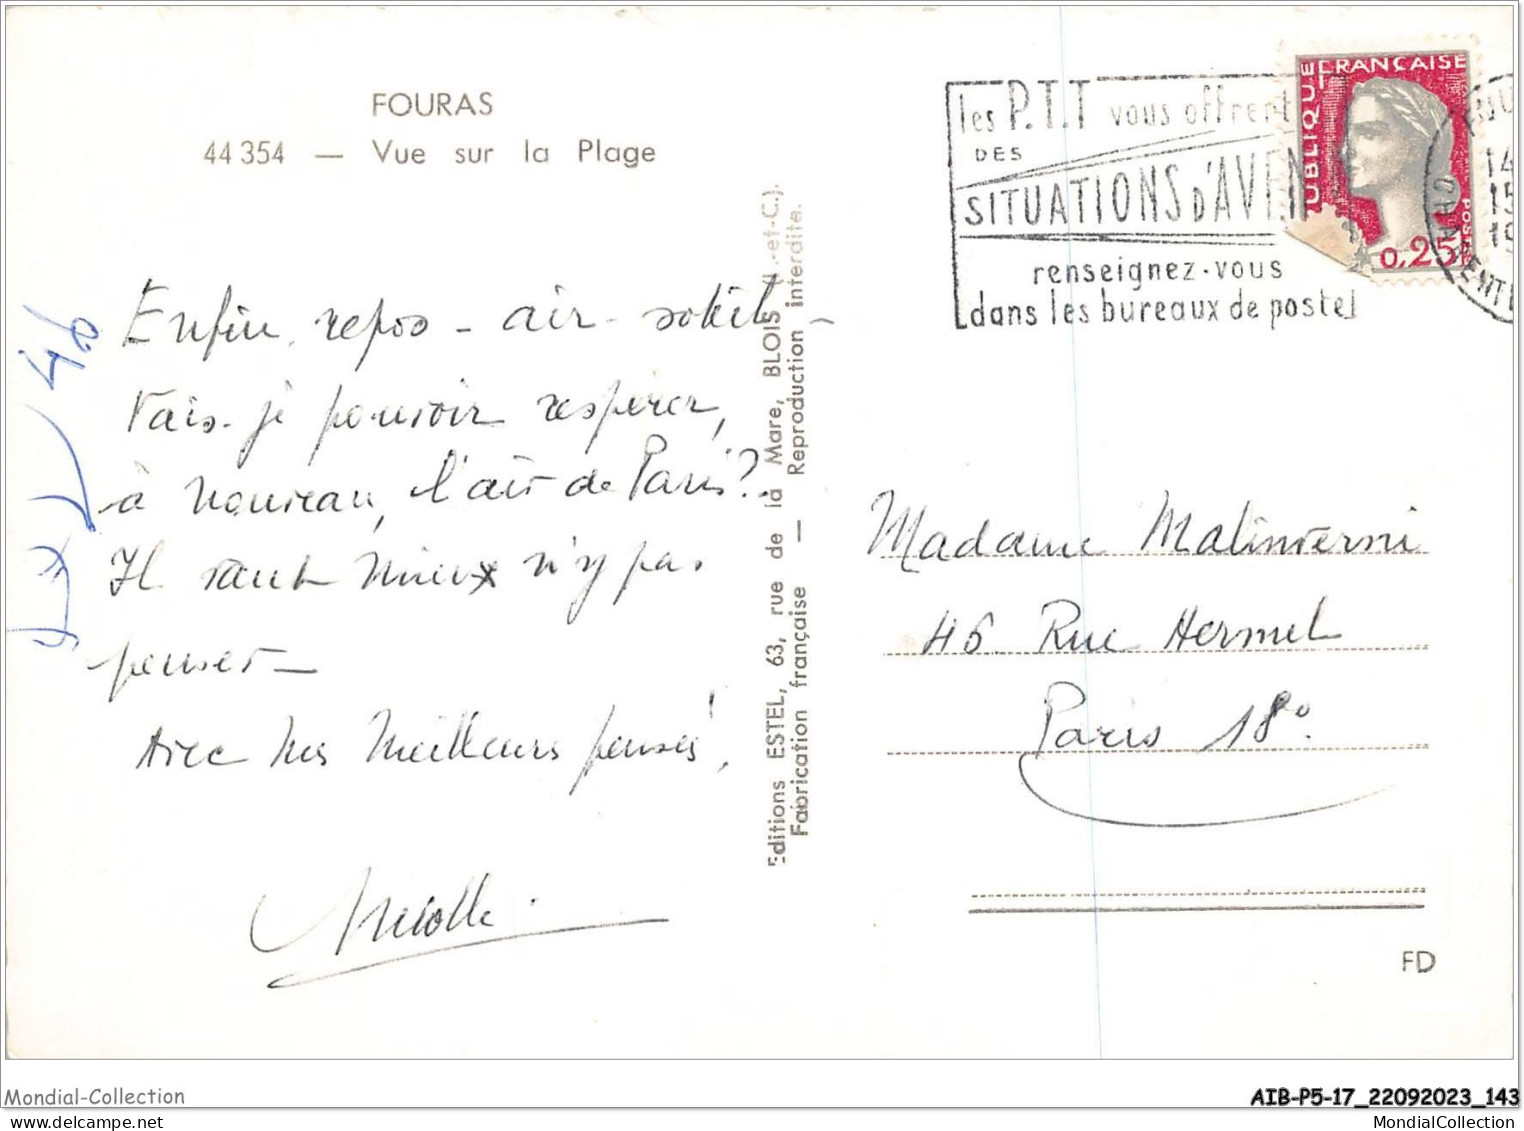 FOURAS
44 354 — Vue sur la Plage
Enfin, repos - air - soleil -
Vais-je pouvoir respirer,
à nouveau, l'air de Paris ?.
Il vaut mieux n'y pas
penser -
Avec mes meilleurs pensées,
Editions ESTEL, 63, rue de la Mare, BLOIS (L.-et-C.).
Fabrication française — Reproduction interdite.
les P.T.T vous offrent
DES
SITUATIONS D'AVEN
renseignez-vous
dans les bureaux de poste
RÉPUBLIQUE FRANÇAISE
POSTES
0,25
14
15
19
Madame Malinverni
46 Rue Hermel
Paris 18°.
FD
Mondial-Collection
AIB-P5-17_22092023_143
MondialCollection